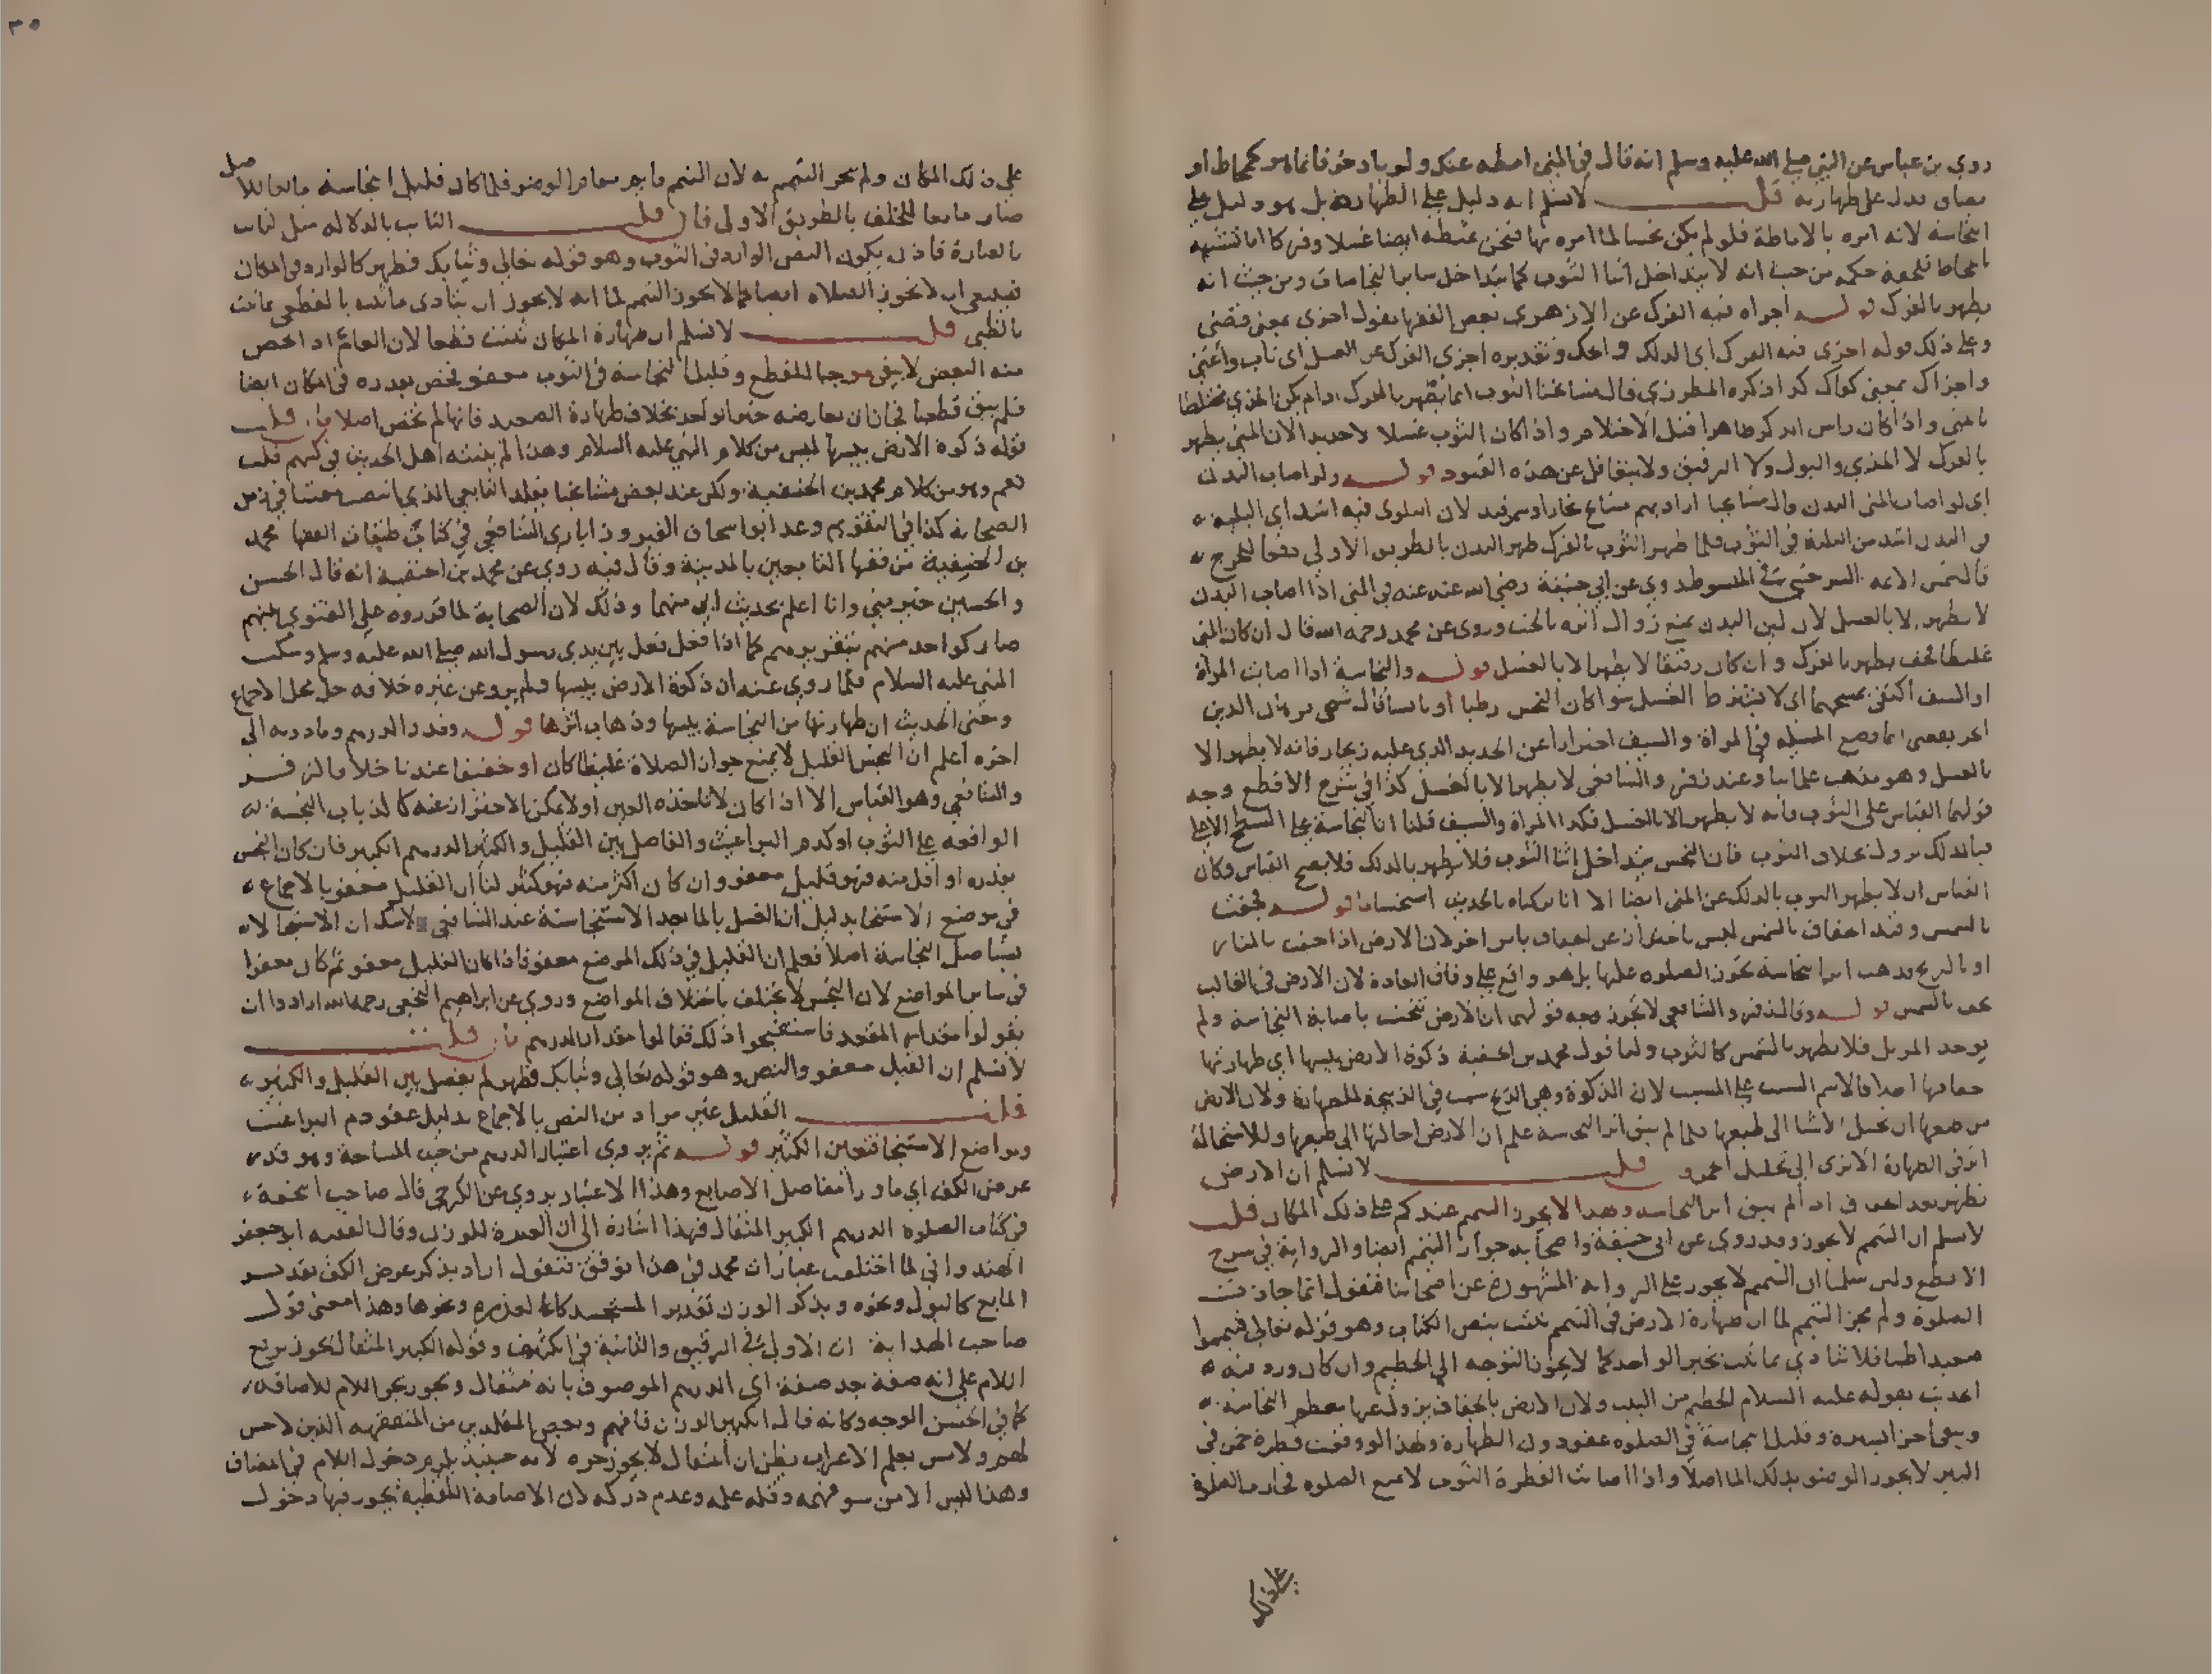 روي بن عباس عن النبي صلى الله عليه وسلم انه قال في المني امطه عنك ولو باذخر فانما هو كمخاط او
بصاق يدل على طهارته قلت لا نسلم انه دليل على الطهارة بل هو دليل على
النجاسة لانه امره بالاماطة فلو لم يكن نجسا لما امره بها فنحن نميطه ايضا غسلا وفركا اما تشبيهه
بالمخاط فلمعنة حكمه من حيث انه لا يتداخل اثنا الثوب كما يتداخل ساير النجاسات ومن حيث انه
يطهر بالفرك قوله اجزاه فيه الفرك عن الازهري بعض الفقها يقول اجزى بمعنى قضى
وعلى ذلك قوله اجزى فيه الفرك اي الدلك والحك وتقديره اجزى الفرك عن الغسل اي ناب واغنى
واجزاك بمعنى كفاك كذا ذكره المطرزي قال مشايخنا الثوب انما يطهر بالفرك اذا لم يكن المذي مختلطا
بالمني واذا كان راس الذكر طاهرا قبل الاحتلام واذا كان الثوب غسيلا لا جديدا لان المني يطهر
بالفرك لا المذي والبول ولا الرقيق ولا يتغافل عن هذه القيود قوله ولو اصاب البدن
اي لو اصاب المني البدن قال مشايخنا اراد بهم مشايخ بخارا وسمرقند لان البلوى فيه اشد اي البلية
في البدن اشد من البلية في الثوب فلما طهر الثوب بالفرك طهر البدن بالطريق الاولى دفعا للحرج
قال شمس الائمه السرخسي في المبسوط روي عن ابي حنيفة رضي الله عنه في المني اذا اصاب البدن
لا يطهر الا بالغسل لان لين البدن يمنع زوال اثره بالحت وروي عن محمد رحمه الله قال ان كان المني
غليظا فجف يطهر بالفرك وان كان رقيقا لا يطهر الا بالغسل قوله والنجاسة اذا اصابت المراة
او السيف اكتفي بمسحهما اي لا يشترط الغسل سوا كان النجس رطبا او يابسا قال شمس
انما وضع المسئله في المراة والسيف احترازا عن الحديد الذي عليه زنجار فانه لا يطهر الا
بالغسل وهو مذهب علمائنا وعند زفر والشافعي لا يطهر الا بالغسل كذا في شرح الاقطع وجه
قولهما القياس على الثوب فانه لا يطهر الا بالغسل فكذا المراة والسيف قلنا ان النجاسة على السطح الاعلى
فبالدلك يزول بخلاف الثوب فان النجس يتداخل اثنا الثوب فلا يطهر بالدلك فلا يصح القياس وكان
القياس ان لا يطهر الثوب بالدلك عن المني ايضا الا انا تركناه بالحديث استحسانا قوله فجفت
بالشمس وقيد الجفاف بالشمس ليس باحتراز عن الجفاف بامر اخر لان الارض اذا جفت بالنار
او بالريح وذهب اثر النجاسة تجوز الصلوه عليها بل هو واقع على وفاق العادة لان الارض في الغالب
تجف بالشمس قوله وقال زفر والشافعي لا تجوز وجه قولهما ان الارض تنجست باصابة النجاسة ولم
يوجد المزيل فلا يطهر بالشمس كالثوب ولنا قول محمد بن الحنفية ذكوة الارض يبسها اي طهارتها
جفافها اطلاقا لاسم السبب على المسبب لان الذكوة وهي الذبح سبب في الذبيحة للطهارة ولان الارض
من طبعها ان تحيل الاشيا الى طبعها فلما لم يبق اثر النجاسة علم ان الارض احالتها الى طبعها وللاستحالة
اثر في الطهارة الا ترى الى تخليل الخمر قلت لا نسلم ان الارض
تطهر بعد الجفاف اذا لم يبق اثر النجاسة ولهذا لا يجوز التيمم عندكم على ذلك المكان قلت
لا نسلم ان التيمم لا يجوز وقد روي عن ابي حنيفة واصحابه جواز التيمم ايضا والرواية في شرح
الاقطع ولئن سلمنا ان التيمم لا يجوز على الرواية المشهورة عن اصحابنا فنقول انما جازت
الصلوة ولم يجز التيمم لما ان طهارة الارض في التيمم ثبتت بنص الكتاب وهو قوله تعالى فتيمموا
صعيدا طيبا فلا تتادي بما ثبت بخبر الواحد كما لا يجوز التوجه الى الحطيم وان كان ورد فيه
الحديث بقوله عليه السلام الحطيم من البيت ولان الارض بالجفاف يزول عنها معظم النجاسة
ويبقى اجزا يسيرة وقليل النجاسة في الصلوه عفو دون الطهارة ولهذا لو وقعت قطرة خمر في
البير لا يجوز الوضو بذلك الما اصلا واذا اصابت القطرة الثوب لا تمنع الصلوه فجازت الصلوة
على ذلك
٣٥
على ذلك المكان ولم يجز التيمم به لان التيمم قايم مقام الوضو فلما كان قليل النجاسة مانعا للاصل
صار مانعا للخلف بالطريق الاولى فان قلت الثابت بالدلاله مثل الثابت
بالعبارة فاذن يكون النص الوارد في الثوب وهو قوله تعالى وثيابك فطهر كالوارد في المكان
فينبغي ان لا تجوز الصلاه ايضا كما لا يجوز التيمم لما انه لا يجوز ان يتادى ما ثبت بالقطعي بما ثبت
بالظني قلت لا نسلم ان طهارة المكان ثبتت قطعا لان العام اذا خص
منه البعض لا يبقى موجبا للقطع وقليل النجاسة في الثوب معفو فخص بقدره في المكان ايضا
فلم يبق قطعيا فجاز ان يعارضه خبر الواحد بخلاف طهارة الصعيد فانها لم تخص اصلا فان قلت
قوله ذكوة الارض يبسها ليس من كلام النبي عليه السلام وهذا لم يثبته اهل الحديث في كتبهم قلت
نعم وهو من كلام محمد بن الحنفية ولكن عند بعض مشايخنا يقلد التابعي الذي انتصب مفتيا في زمن
الصحابة كذا في التقويم وعد ابو اسحاق الفيروز ابادي الشافعي في كتاب طبقات الفقها محمد
بن الحنفية من فقها التابعين بالمدينة وقال فيه روي عن محمد بن الحنفية انه قال الحسن
والحسين خير مني وانا اعلم بحديث ابي منهما وذلك لان الصحابة لما قرروه على الفتوى بينهم
صار كواحد منهم بتقريرهم كما اذا فعل فعل بين يدي رسول الله صلى الله عليه وسلم وسكت
النبي عليه السلام فلما روي عنه ان ذكوة الارض يبسها ولم يرو عن غيره خلافه حل محل الاجماع
ومعنى الحديث ان طهارتها من النجاسة يبسها وذهاب اثرها قوله وقدر الدرهم وما دونه الى
اخره اعلم ان النجس القليل لا يمنع جواز الصلاة غليظا كان او خفيفا عندنا خلافا لزفر
والشافعي وهو القياس الا اذا كان لا تاخذه العين او لا يمكن الاحتراز عنه كالذباب النجسة
الواقعه على الثوب او كدم البراغيث والفاصل بين القليل والكثير الدرهم الكبير فان كان النجس
بقدره او اقل منه فهو قليل معفو وان كان اكثر منه فهو كثير لنا ان القليل معفو بالاجماع
في موضع الاستنجا بدليل ان الغسل بالما بعد الاستنجا سنة عند الشافعي ولا شك ان الاستنجا لا
يستاصل النجاسة اصلا فعلم ان القليل في ذلك الموضع معفو فاذا كان القليل معفو ثم كان معفوا
في ساير المواضع لان النجس لا يختلف باختلاف المواضع وروي عن ابراهيم النخعي رحمه الله ارادوا ان
يقولوا مقدار المقعد فاستقبحوا ذلك فقالوا مقدار الدرهم فان قلت
لا نسلم ان القليل معفو والنص وهو قوله تعالى وثيابك فطهر لم يفصل بين القليل والكثير
قلت القليل غير مراد من النص بالاجماع بدليل عفو دم البراغيث
ومواضع الاستنجا فتعين الكثير قوله ثم يروى اعتبار الدرهم من حيث المساحة وهو قدر
عرض الكف اي ما ورا مفاصل الاصابع وهذا الاعتبار يروي عن الكرخي قال صاحب التحفة
في كتاب الصلوه الدرهم الكبير المثقال فهذا اشارة الى ان العبرة للوزن وقال الفقيه ابو جعفر
الهندواني لما اختلفت عبارات محمد في هذا نوفق فنقول اراد بذكر عرض الكف تقدير
المايع كالبول ونحوه وبذكر الوزن تقدير المستجسد كالعذره ونحوها وهذا معنى قول
صاحب الهداية ان الاولى في الرقيق والثانية في الكثيف وقوله الكبير المثقال يجوز برفع
اللام على انه صفة بعد صفة اي الدرهم الموصوف بانه مثقال ويجوز بجر اللام للاضافة
كما في الحسن الوجه وكانه قال الكبير الوزن فافهم وبعض المقلدين من المتفقهه الذين لا حس
لهم ولا مس بعلم الاعراب يظن ان المثقال لا يجوز جره لانه حينيذ يلزم دخول اللام في المضاف
وهذا ليس الا من سو فهمه وقلة علمه وعدم دركه لان الاضافة اللفظية يجوز فيها دخول